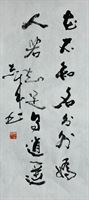 花不知名分外嬌
人若知足自逍遙